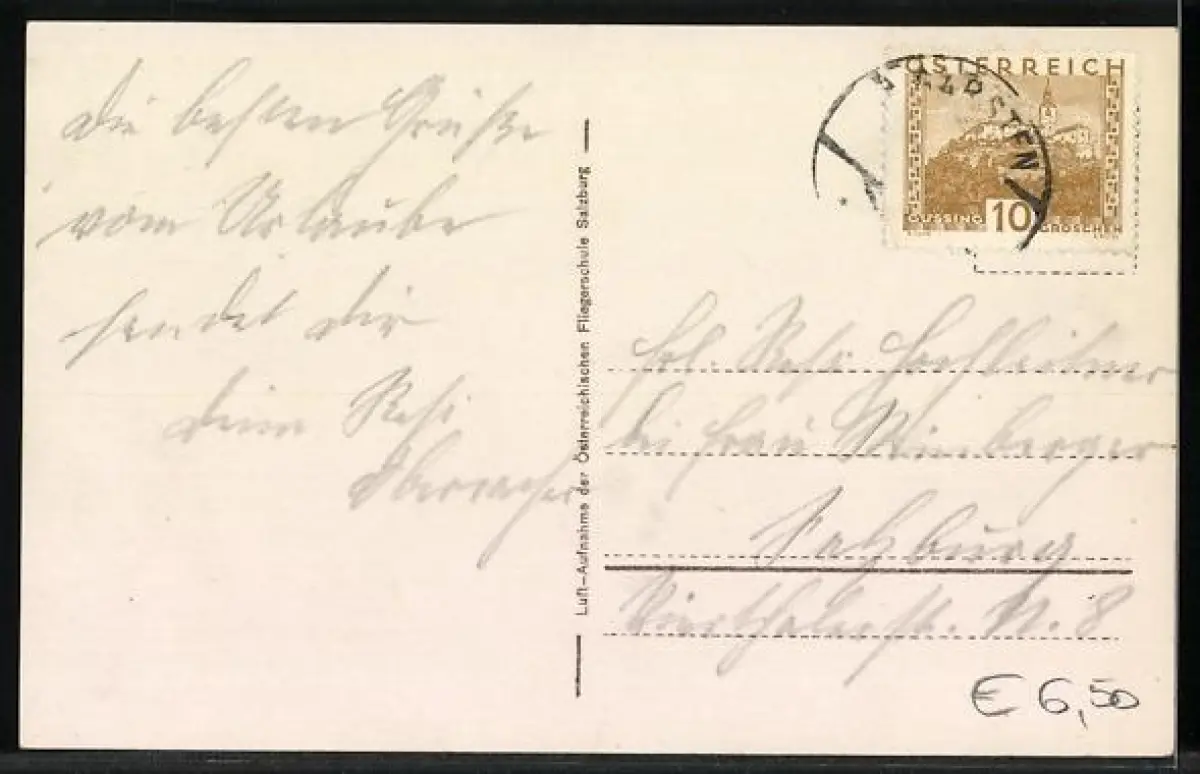 Die besten Grüße
vom Urlaube
sendet dir
deine Resi
Oberracher
Luft-Aufnahme der Österreichischen Fliegerschule Salzburg
ÖSTERREICH
GÜSSING 10 GROSCHEN
Frl. Resi
bei Frau Weinberger
Salzburg
N. 8
€ 6,50